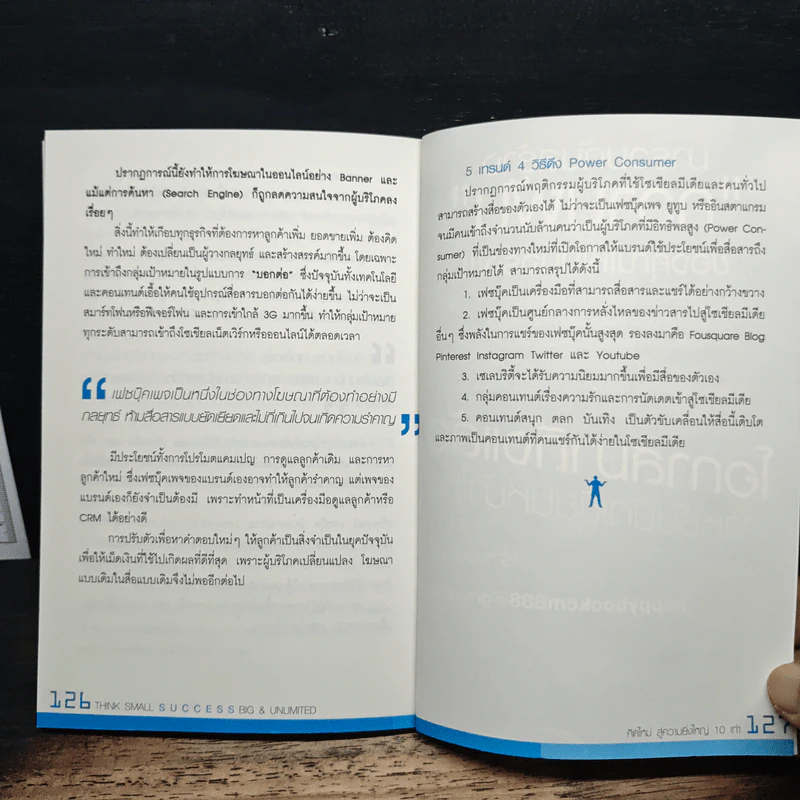 ปรากฏการณ์นี้ยังทำให้การโฆษณาในออนไลน์อย่าง Banner และ
แม้แต่การค้นหา (Search Engine) ก็ถูกลดความสนใจจากผู้บริโภคลง
เรื่อยๆ
สิ่งนี้ทำให้เกือบทุกธุรกิจที่ต้องการหาลูกค้าเพิ่ม ยอดขายเพิ่ม ต้องคิด
ใหม่ ทำใหม่ ต้องเปลี่ยนเป็นผู้วางกลยุทธ์ และสร้างสรรค์มากขึ้น โดยเฉพาะ
การเข้าถึงกลุ่มเป้าหมายในรูปแบบการ "บอกต่อ" ซึ่งปัจจุบันทั้งเทคโนโลยี
และคอนเทนต์เอื้อให้คนใช้อุปกรณ์สื่อสารบอกต่อกันได้ง่ายขึ้น ไม่ว่าจะเป็น
สมาร์ทโฟนหรือฟีเจอร์โฟน และการเข้าใช้ 3G มากขึ้น ทำให้กลุ่มเป้าหมาย
ทุกระดับสามารถเข้าถึงโซเชียลเน็ตเวิร์กหรือออนไลน์ได้ตลอดเวลา
“ เฟซบุ๊คเพจเป็นหนึ่งในช่องทางโฆษณาที่ต้องทำอย่างมี
กลยุทธ์ ห้ามสื่อสารแบบยัดเยียดและไม่ถี่เกินไปจนเกิดความรำคาญ ”
มีประโยชน์ทั้งการโปรโมตแคมเปญ การดูแลลูกค้าเดิม และการหา
ลูกค้าใหม่ ซึ่งเฟซบุ๊คเพจของแบรนด์เองอาจทำให้ลูกค้ารำคาญ แต่เพจของ
แบรนด์เองก็ยังจำเป็นต้องมี เพราะทำหน้าที่เป็นเครื่องมือดูแลลูกค้าหรือ
CRM ได้อย่างดี
การปรับตัวเพื่อหาคำตอบใหม่ๆ ให้ลูกค้าเป็นสิ่งจำเป็นในยุคปัจจุบัน
เพื่อให้เม็ดเงินที่ใช้ไปเกิดผลที่ดีที่สุด เพราะผู้บริโภคเปลี่ยนแปลง โฆษณา
แบบเดิมในสื่อแบบเดิมจึงไม่พออีกต่อไป
126 THINK SMALL SUCCESS BIG & UNLIMITED
5 เทรนด์ 4 วิธีดึง Power Consumer
ปรากฏการณ์พฤติกรรมผู้บริโภคที่ใช้โซเชียลมีเดียและคนทั่วไป
สามารถสร้างสื่อของตัวเองได้ ไม่ว่าจะเป็นเฟซบุ๊คเพจ ยูทูบ หรืออินสตาแกรม
จนมีคนเข้าถึงจำนวนนับล้านคนว่าเป็นผู้บริโภคที่มีอิทธิพลสูง (Power Con-
sumer) ที่เป็นช่องทางใหม่ที่เปิดโอกาสให้แบรนด์ใช้ประโยชน์เพื่อสื่อสารถึง
กลุ่มเป้าหมายได้ สามารถสรุปได้ดังนี้
1. เฟซบุ๊คเป็นเครื่องมือที่สามารถสื่อสารและแชร์ได้อย่างกว้างขวาง
2. เฟซบุ๊คเป็นศูนย์กลางการหลั่งไหลของข่าวสารไปสู่โซเชียลมีเดีย
อื่นๆ ซึ่งพลังในการแชร์ของเฟซบุ๊คนั้นสูงสุด รองลงมาคือ Fousquare Blog
Pinterest Instagram Twitter และ Youtube
3. เซเลบริตี้จะได้รับความนิยมมากขึ้นเพื่อมีสื่อของตัวเอง
4. กลุ่มคอนเทนต์เรื่องความรักและการนัดเดตเข้าสู่โซเชียลมีเดีย
5. คอนเทนต์สนุก ตลก บันเทิง เป็นตัวขับเคลื่อนให้สื่อนี้เติบโต
และภาพเป็นคอนเทนต์ที่คนแชร์กันได้ง่ายในโซเชียลมีเดีย
คิดใหม่ สู่ความยิ่งใหญ่ 10 เท่า 127